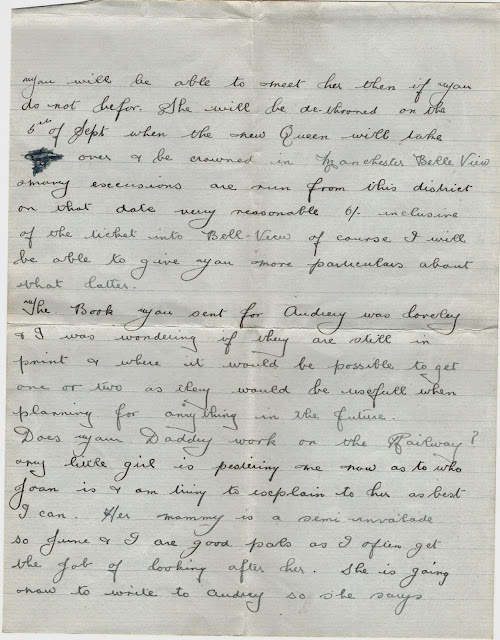 you will be able to meet her then if you
do not befor. She will be de-throned on the
5th of Sept when the new Queen will take
over & be crowned in Manchester Belle View
many excursions are run from this district
on that date very reasonable 6/- inclusive
of the ticket into Bell-View of course I will
be able to give you more particulars about
that latter.
The Book you sent for Audrey was loveley
& I was wondering if they are still in
print & where it would be possible to get
one or two as they would be usefull when
planning for anything in the future.
Does your Daddy work on the Railway?
my little girl is pestering me now as to who
Joan is & am tring to explain to her as best
I can. Her mammy is a semi invalade
so June & I are good pals as I often get
the job of looking after her. She is going
now to write to Audrey so she says